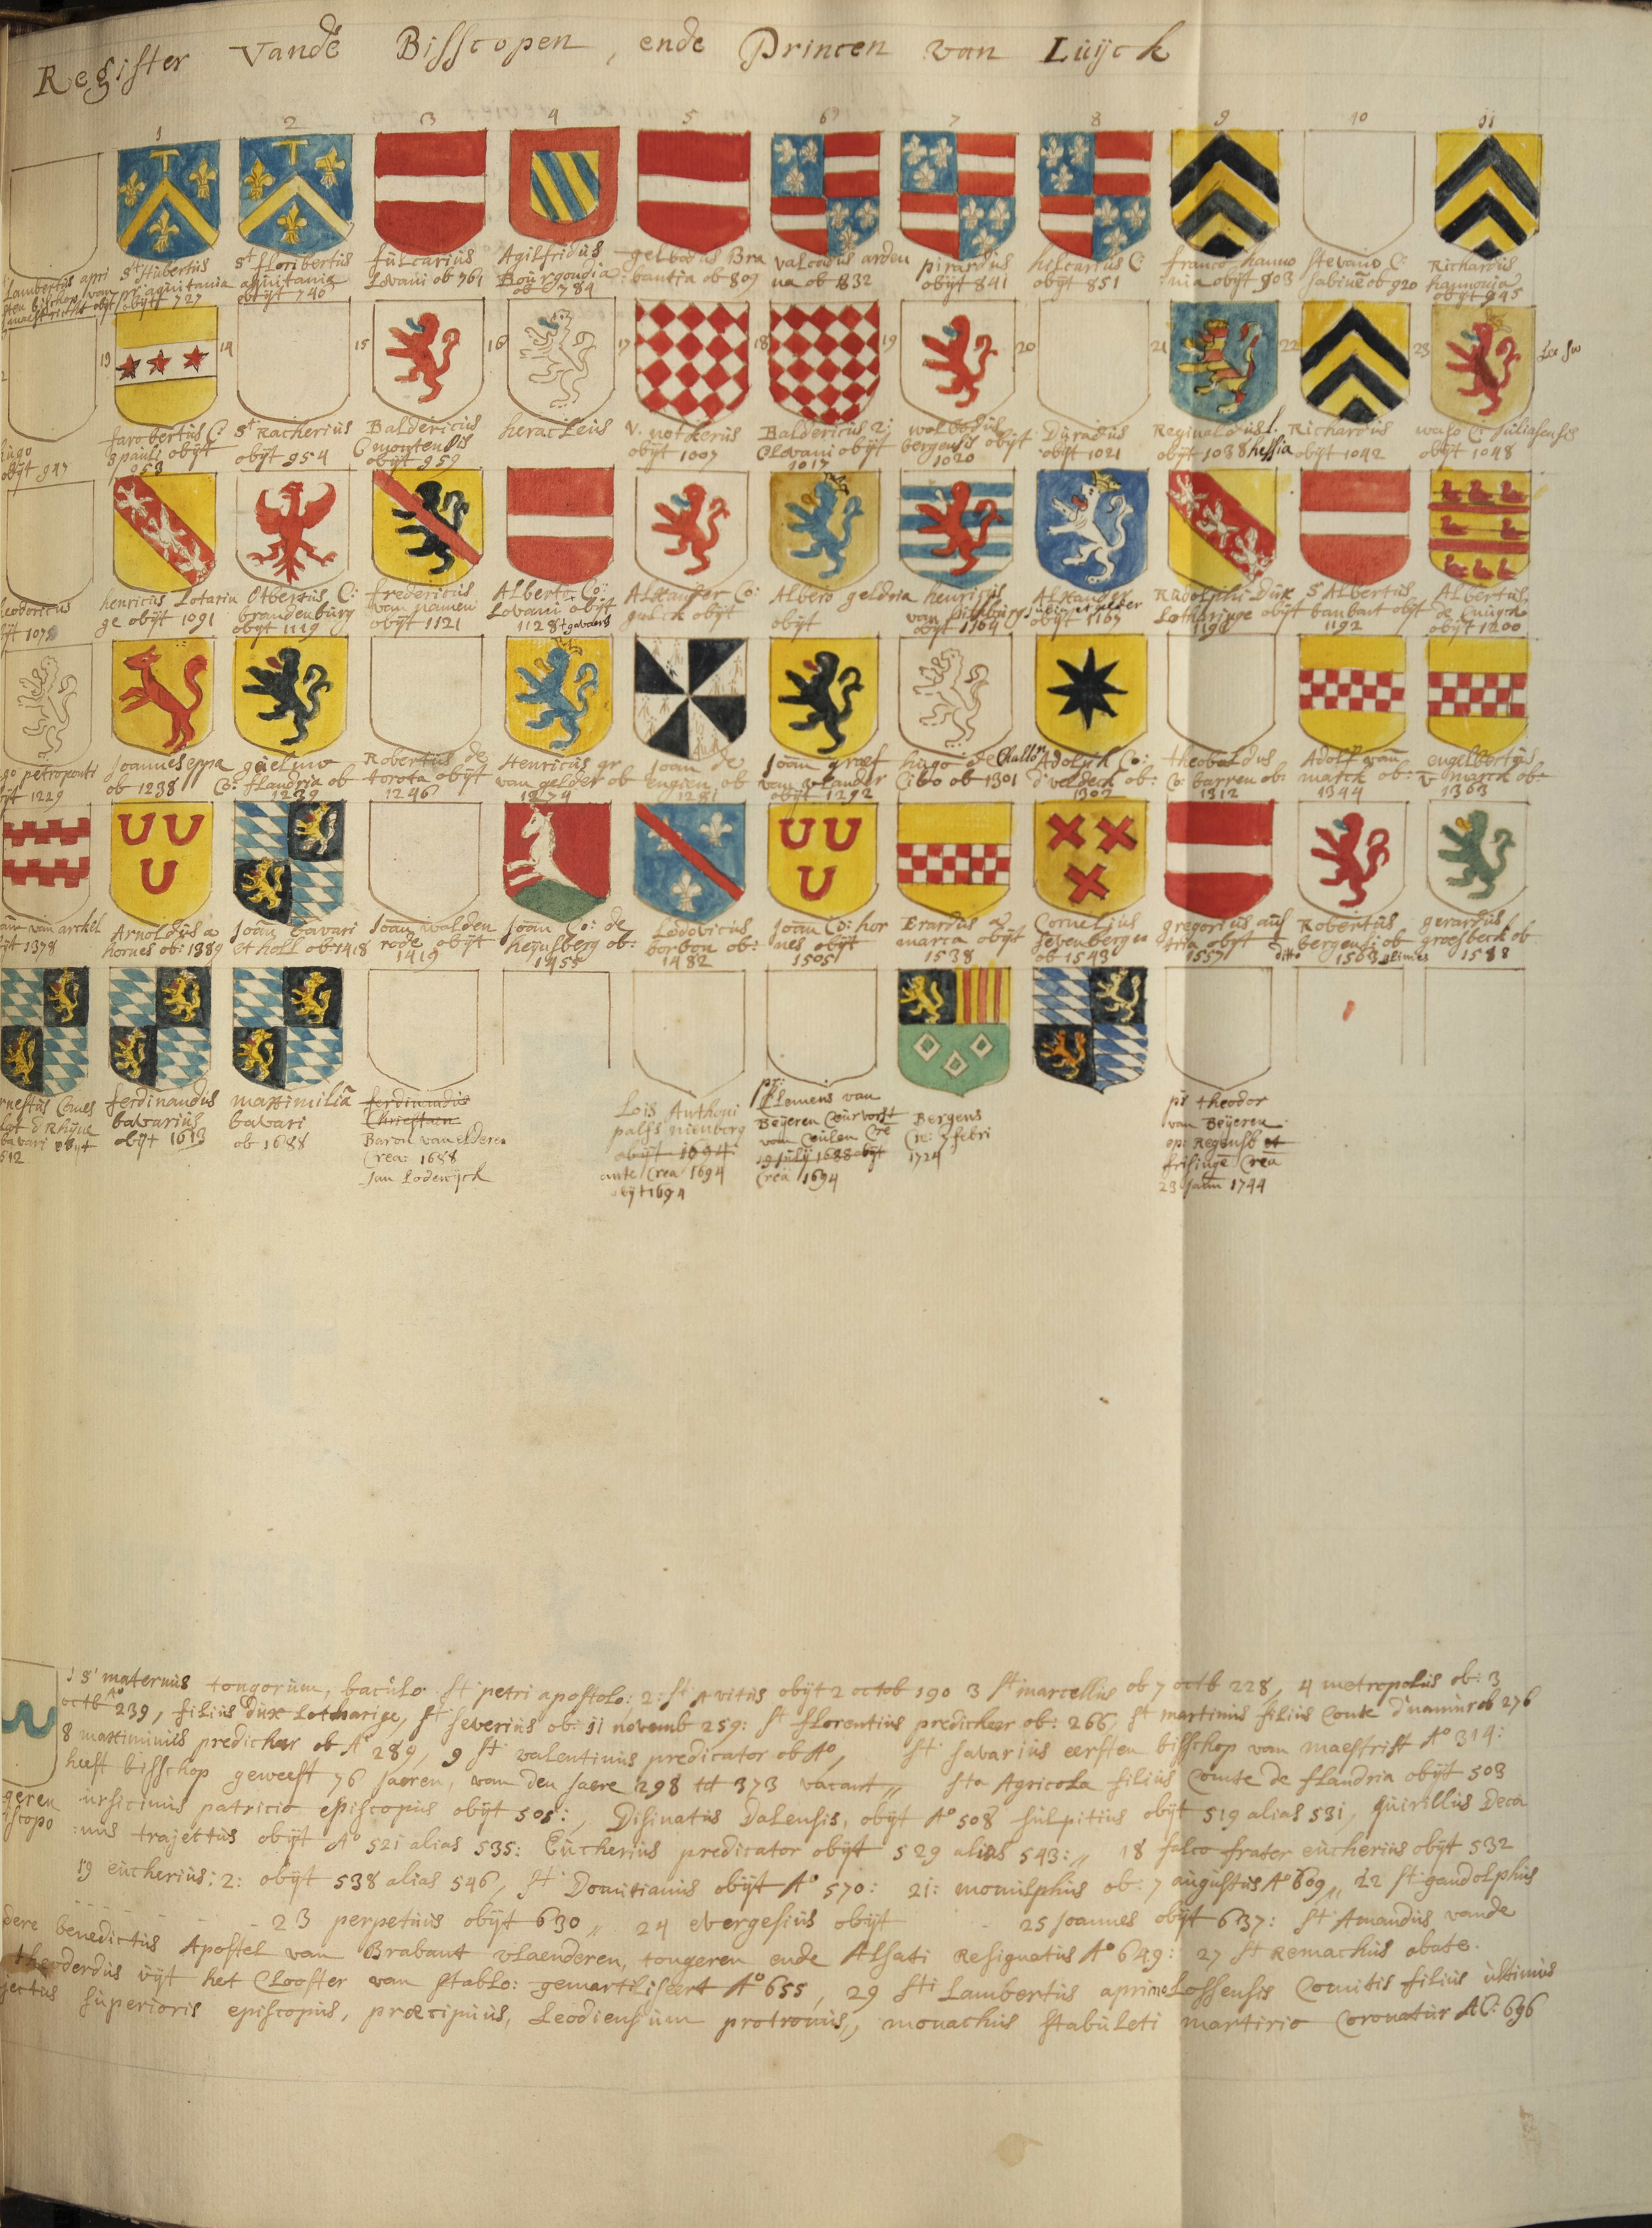 Register Vandē Bisscopen, ende Princen van Luijck
1 2 3 4 5 6 7 8 9 10 11
Lambertus apri
sten bischop van
st Hubertus
aquitania
obijt 727
st floribertus
aquitaniæ
obijt 746
fulcarius
Lovani ob 761
Agilfridus
Bourgondia
ob 784
gelbodus Bra
bantia ob 809
valcadus arden
na ob 832
pirardus
obijt 841
hilcarius C:
obijt 851
franco hanno
nia obijt 903
stevano C:
sabinē ob 920
Richardus
hannonia
obijt 945
13 14 15 16 17 18 19 20 21 22 23
hugo
obijt 947
farobertus C:
s pauli obijt
953
st Racherius
obijt 954
Baldericus
C montensis
obijt 959
heracleus
V. notkerus
obijt 1007
Baldericus 2:
Clovani obijt
1017
wolbodus
bergensis obijt
1020
Duradus
obijt 1021
Reginaldus L.
obijt 1038 hessia
Richardus
obijt 1042
waso C: Juliasensis
obijt 1048
leodoricus
henricus Lotarin
ge obijt 1091
Otbertus C:
brandenburg
obijt 1119
fredericus
van namen
obijt 1121
Alberto Co:
Lovani obijt
1128
Alexander Co:
gulck obijt
Albero geldria
obijt
henricus
van
obijt 1164
Alexander
obijt 1167
Rudolphi Dux
Lotharinge obijt
1190
s Albertus
banbant obijt
1192
Albertus
de Cuijck
obijt 1200
go petroponti
ijt 1229
Joannes eppa
ob 1238
guelmo
Co: flandria ob
1239
Robertus de
torota obijt
1246
Henricus gr
van gelder ob
1274
Joan de
engien ob
1281
Joan graef
van vlander
obijt 1292
hugo de Challō
Cibo ob 1301
Adolph Co:
d'valdeck ob:
1302
theobaldus
Co: barren ob:
1312
Adolf vañ
marck ob:
1344
engelbertus
v marck ob:
1363
van arckel
ijt 1378
Arnoldus a
hornes ob: 1389
Joan bavari
et holl ob: 1418
Joan walden
rode obijt
1419
Joan Co: de
heynsberg ob:
1455
Lodovicus
borbon ob:
1482
Joan Co: hor
nes obijt
1505
Erardus a
marca obijt
1538
Cornelius
sevenbergen
ob 1543
gregorius aus
tria obijt
1557
Robertus
bergensi ob
ditto 1563 glimes
gerardus
groesbeck ob
1588
rnestus Comes
bavari obijt
612
ferdinandus
bavarius
obijt 1613
maximiliā
bavari
ob 1688
ferdinandis
Chrisstian
Baron van elderen
Crea: 1688
Jan Lodewijck
Lois Anthoni
palss nienborg
obijt 1694
ante Crea 1694
obijt 1694
pr:
Clemens van
Beijeren Ceurvorst
van Ceulen Cre
19 julij 1688 obijt
Crea 1694
Bergens
Cre: 7 febri
1724
pr theodor
van Beijeren
op: Regensb et
frisinge Crea
23 Jann 1744
1 S' maternus tongorum, baculo st petri apostolo: 2: st Avitus obijt 2 octob 190 3 st marcellus ob 7 octb 228, 4 metropolus ob: 3
octb Ao 239, filius dux Lotharige, st severius ob: 11 novemb 259: st florentius predicker ob: 266, st martinus filius Conte d'namur ob 276
8 maximinus predicker ob Ao 289, 9 st valentinus predicator ob Ao, st savarius eersten bisschop van maestrist Ao 314:
heeft bisschop geweest 76 jaeren, van den jaere 298 tot 373 vacant,, sta Agricola filius Comte de flandria obijt 503
geren ursicinus patricio episcopus obijt 505:, Disinatus Dalensis, obijt Ao 508 sulpitius obijt 519 alias 531, quirillus Deca
iscopo :nus trajettus obijt Ao 521 alias 535: Eucherius predicator obijt 529 alias 543:,, 18 falco frater eucherius obijt 532
19 eucherius: 2: obijt 538 alias 546, st Domitianus obijt Ao 570: 21: momulphus ob: 7 augustus Ao 609,, 22 st gandolphus
23 perpetuus obijt 630,, 24 evergesius obijt 25 Joannes obijt 637: st Amandus vande
dere benedictus Apostel van Brabant vlaenderen, tongeren ende Alsati Resignatus Ao 649: 27 st Remachus abate.
theoderdus uijt het Clooster van stablo: gemartiliseert Ao 655, 29 sti Lambertus aprimo Lossensis Comitis filius ultimus
jectus superioris episcopus, præcipuus, Leodiensium protronus,, monachus stabuleti martirio Coronatur AC: 696